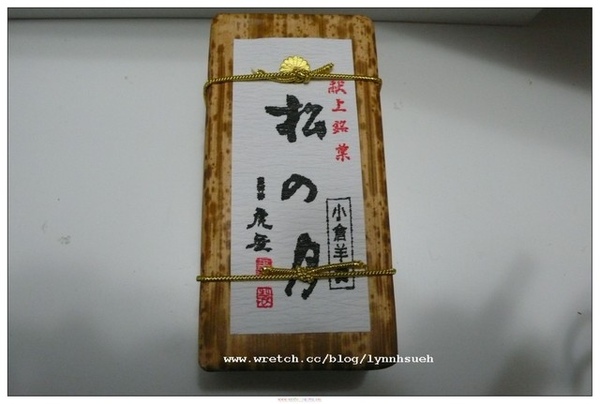 献上銘菓
松の月
小倉羊
虎屋
www.wretch.cc/blog/lynnhsueh